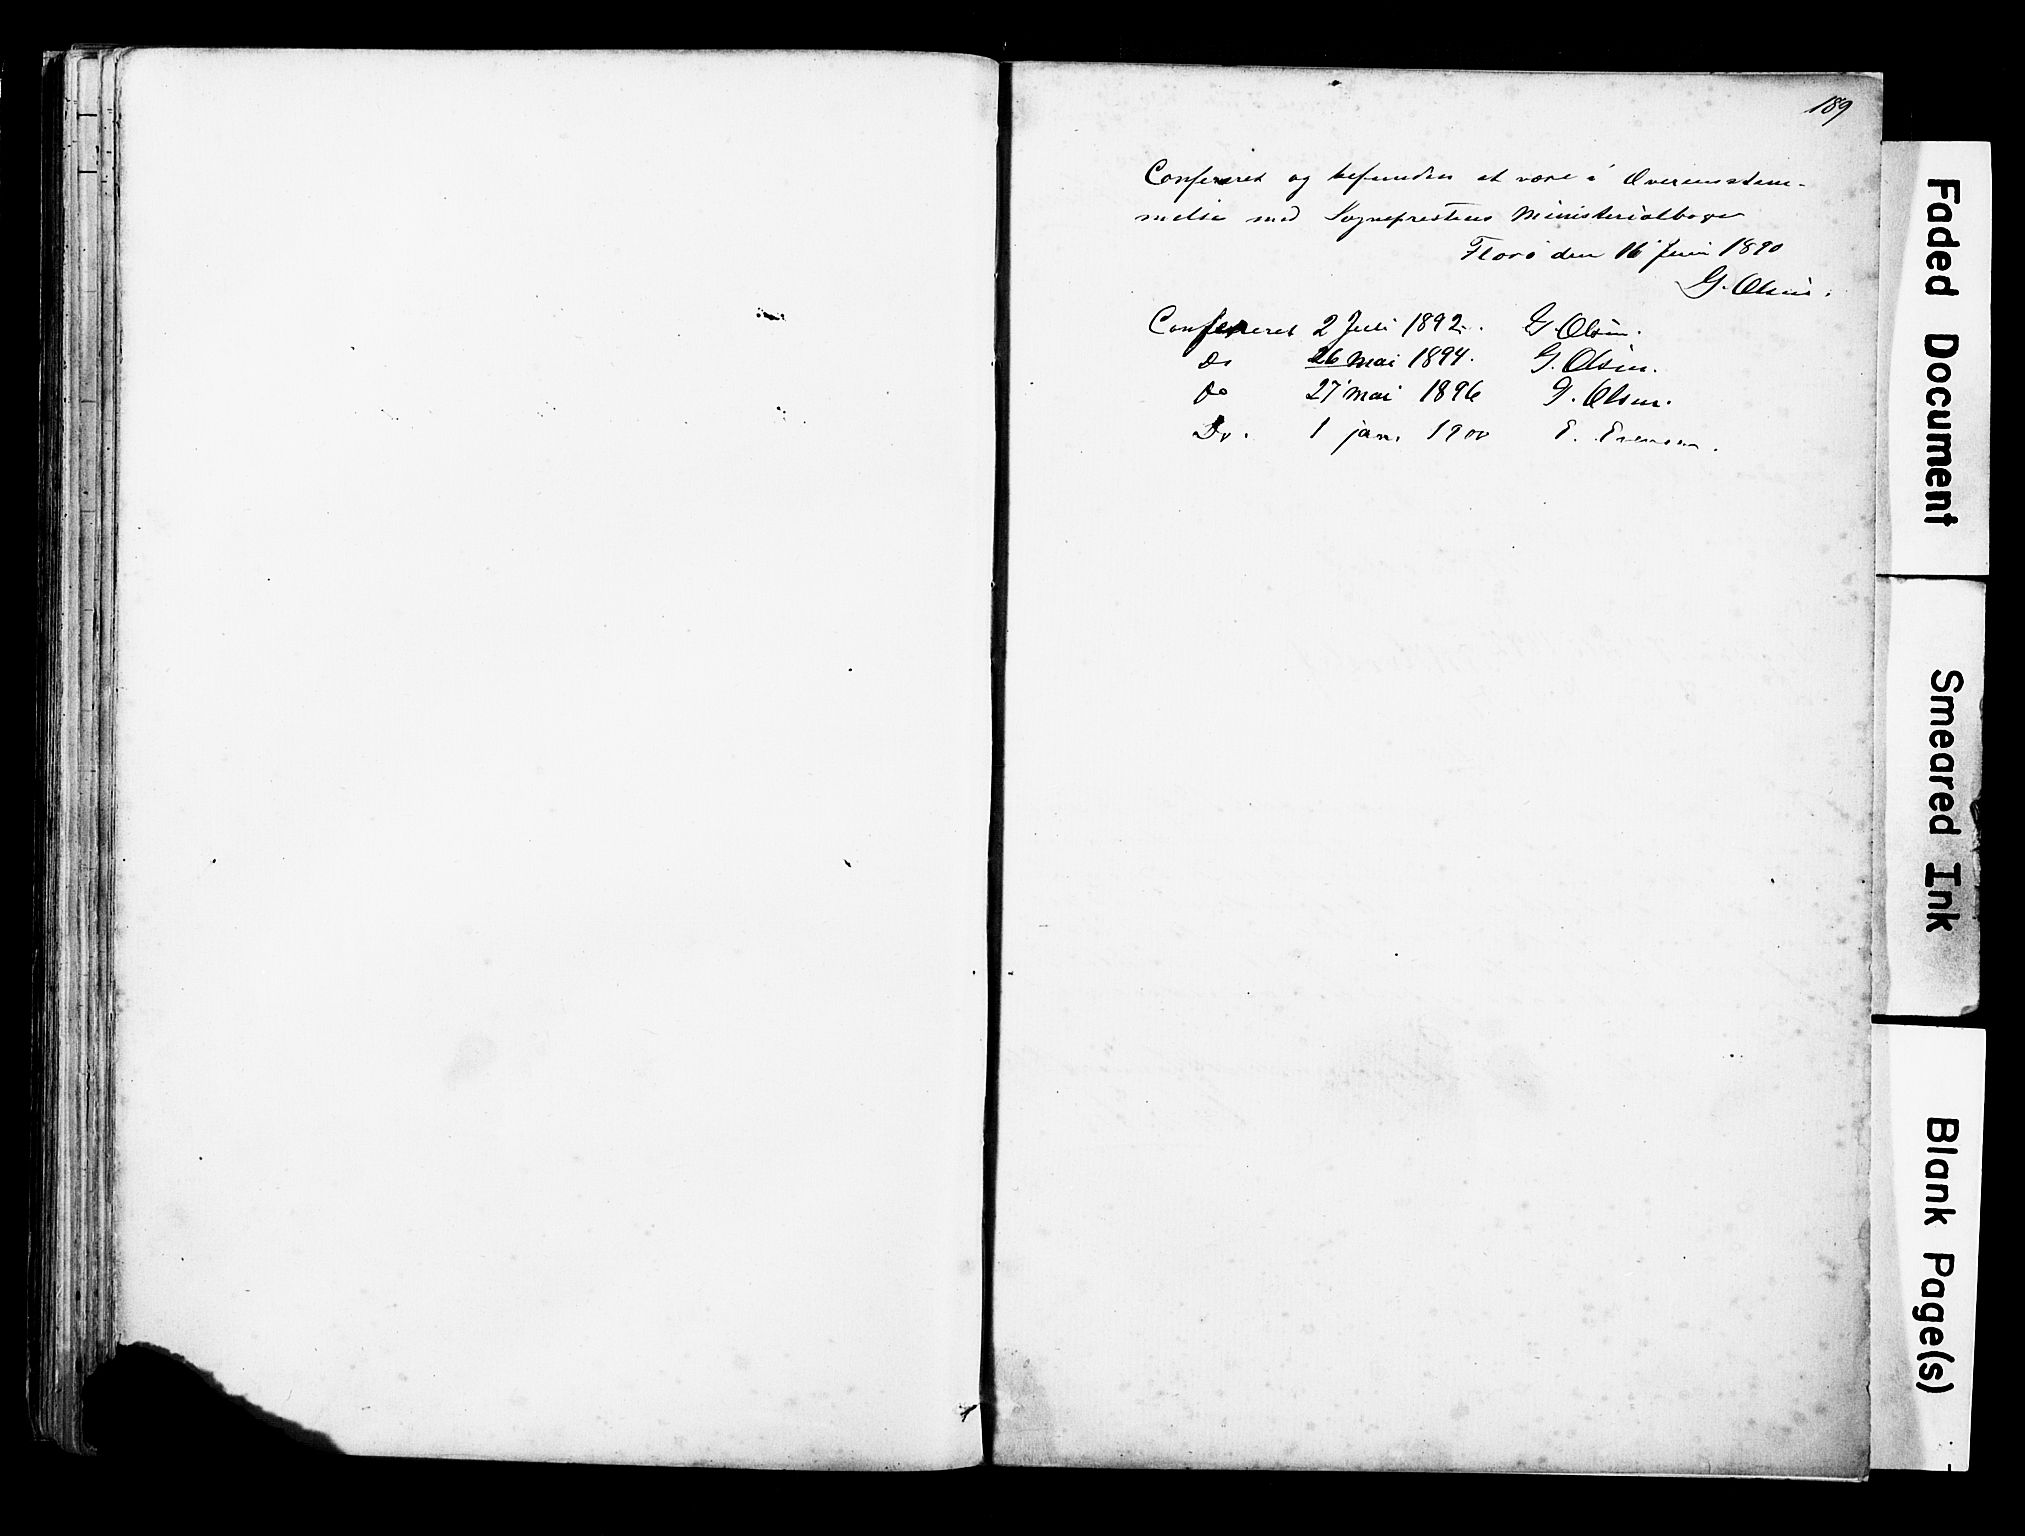 189
Confereret og befunden at være i Overensstem-
melse med Sogneprestens Ministerialbog
Florø den 16 Juni 1890
G. Olsen.
Confereret 2 Juli 1892. G. Olsen.
Do 26 mai 1894. G. Olsen.
Do 27 mai 1896 G. Olsen.
Do. 1 jan. 1900 E. Evensen.
Faded Document
Smeared Ink
Blank Page(s)